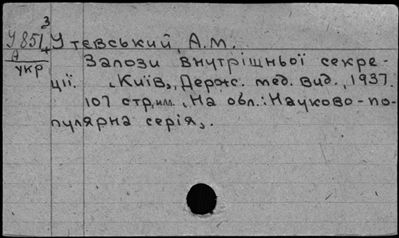 3
У851 Утевський, А.М.
А
укр
Залози внутрішньої секре-
ції. Київ, Держ. мед. вид., 1937.
107 стр., илл. На обл.: Науково-по-
пулярна серія.